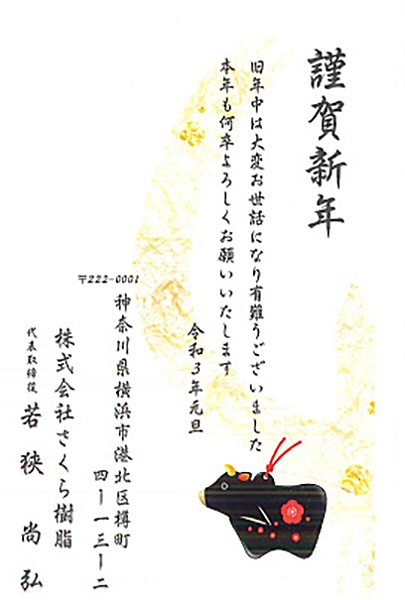 謹賀新年
旧年中は大変お世話になり有難うございました
本年も何卒よろしくお願いいたします
令和3年元旦
〒222-0001
神奈川県横浜市港北区樽町
四ー一三ー二
株式会社さくら樹脂
代表取締役 若狭 尚弘